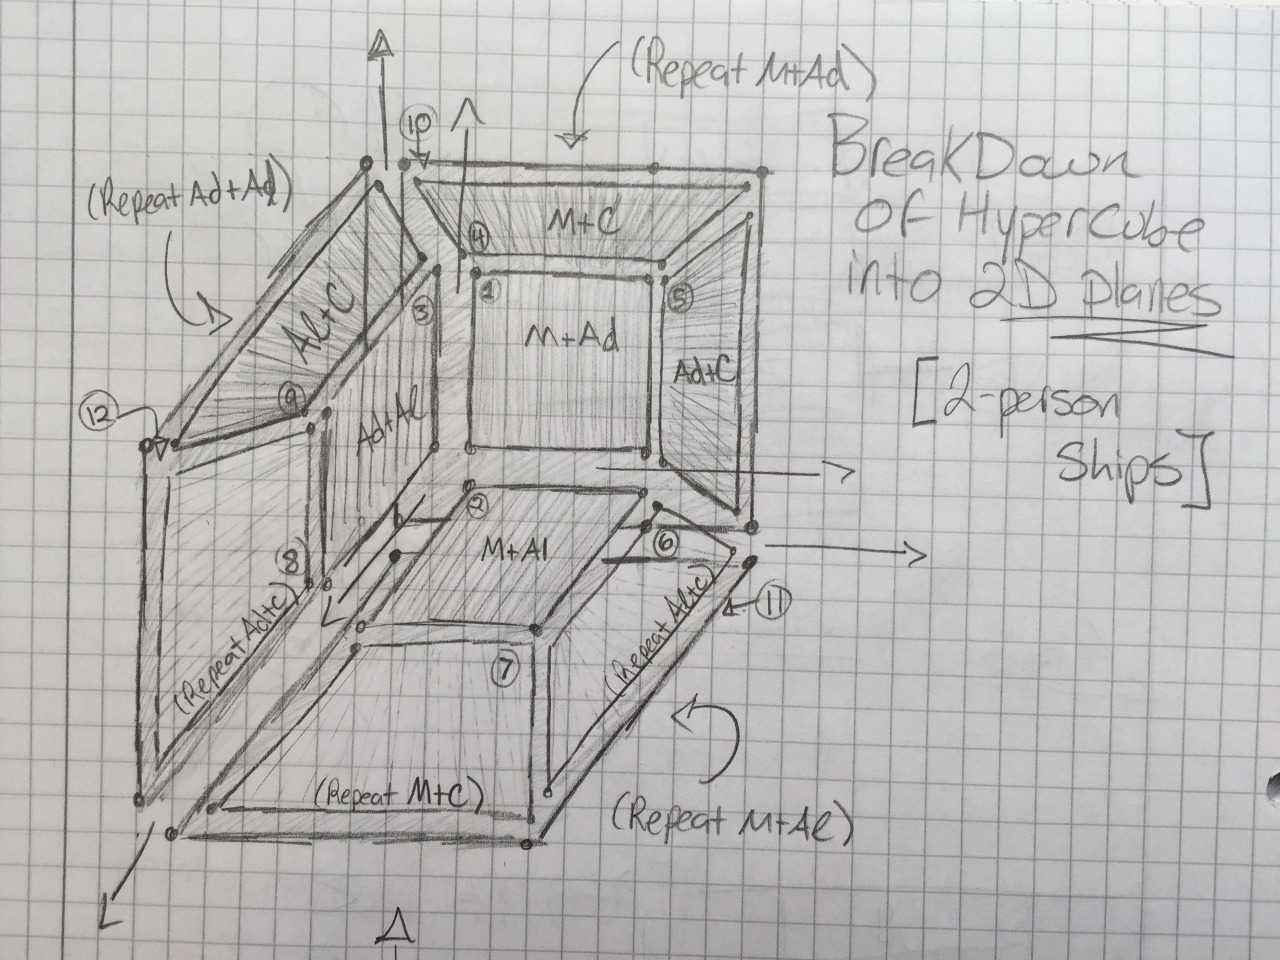 (Repeat M+Ad)
BreakDown
Of Hypercube
into 2D planes
[2-person
Ships]
(Repeat Ad+Ad)
10
M+C
4
1
5
3
M+Ad
Al+C
Ad+C
9
12
Ad+Al
2
M+Al
6
8
(Repeat Ad+C)
(Repeat Al+C)
11
7
(Repeat M+C)
(Repeat M+Al)